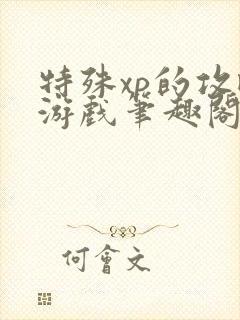 特殊xp的攻
游戏笔趣阁
何會文